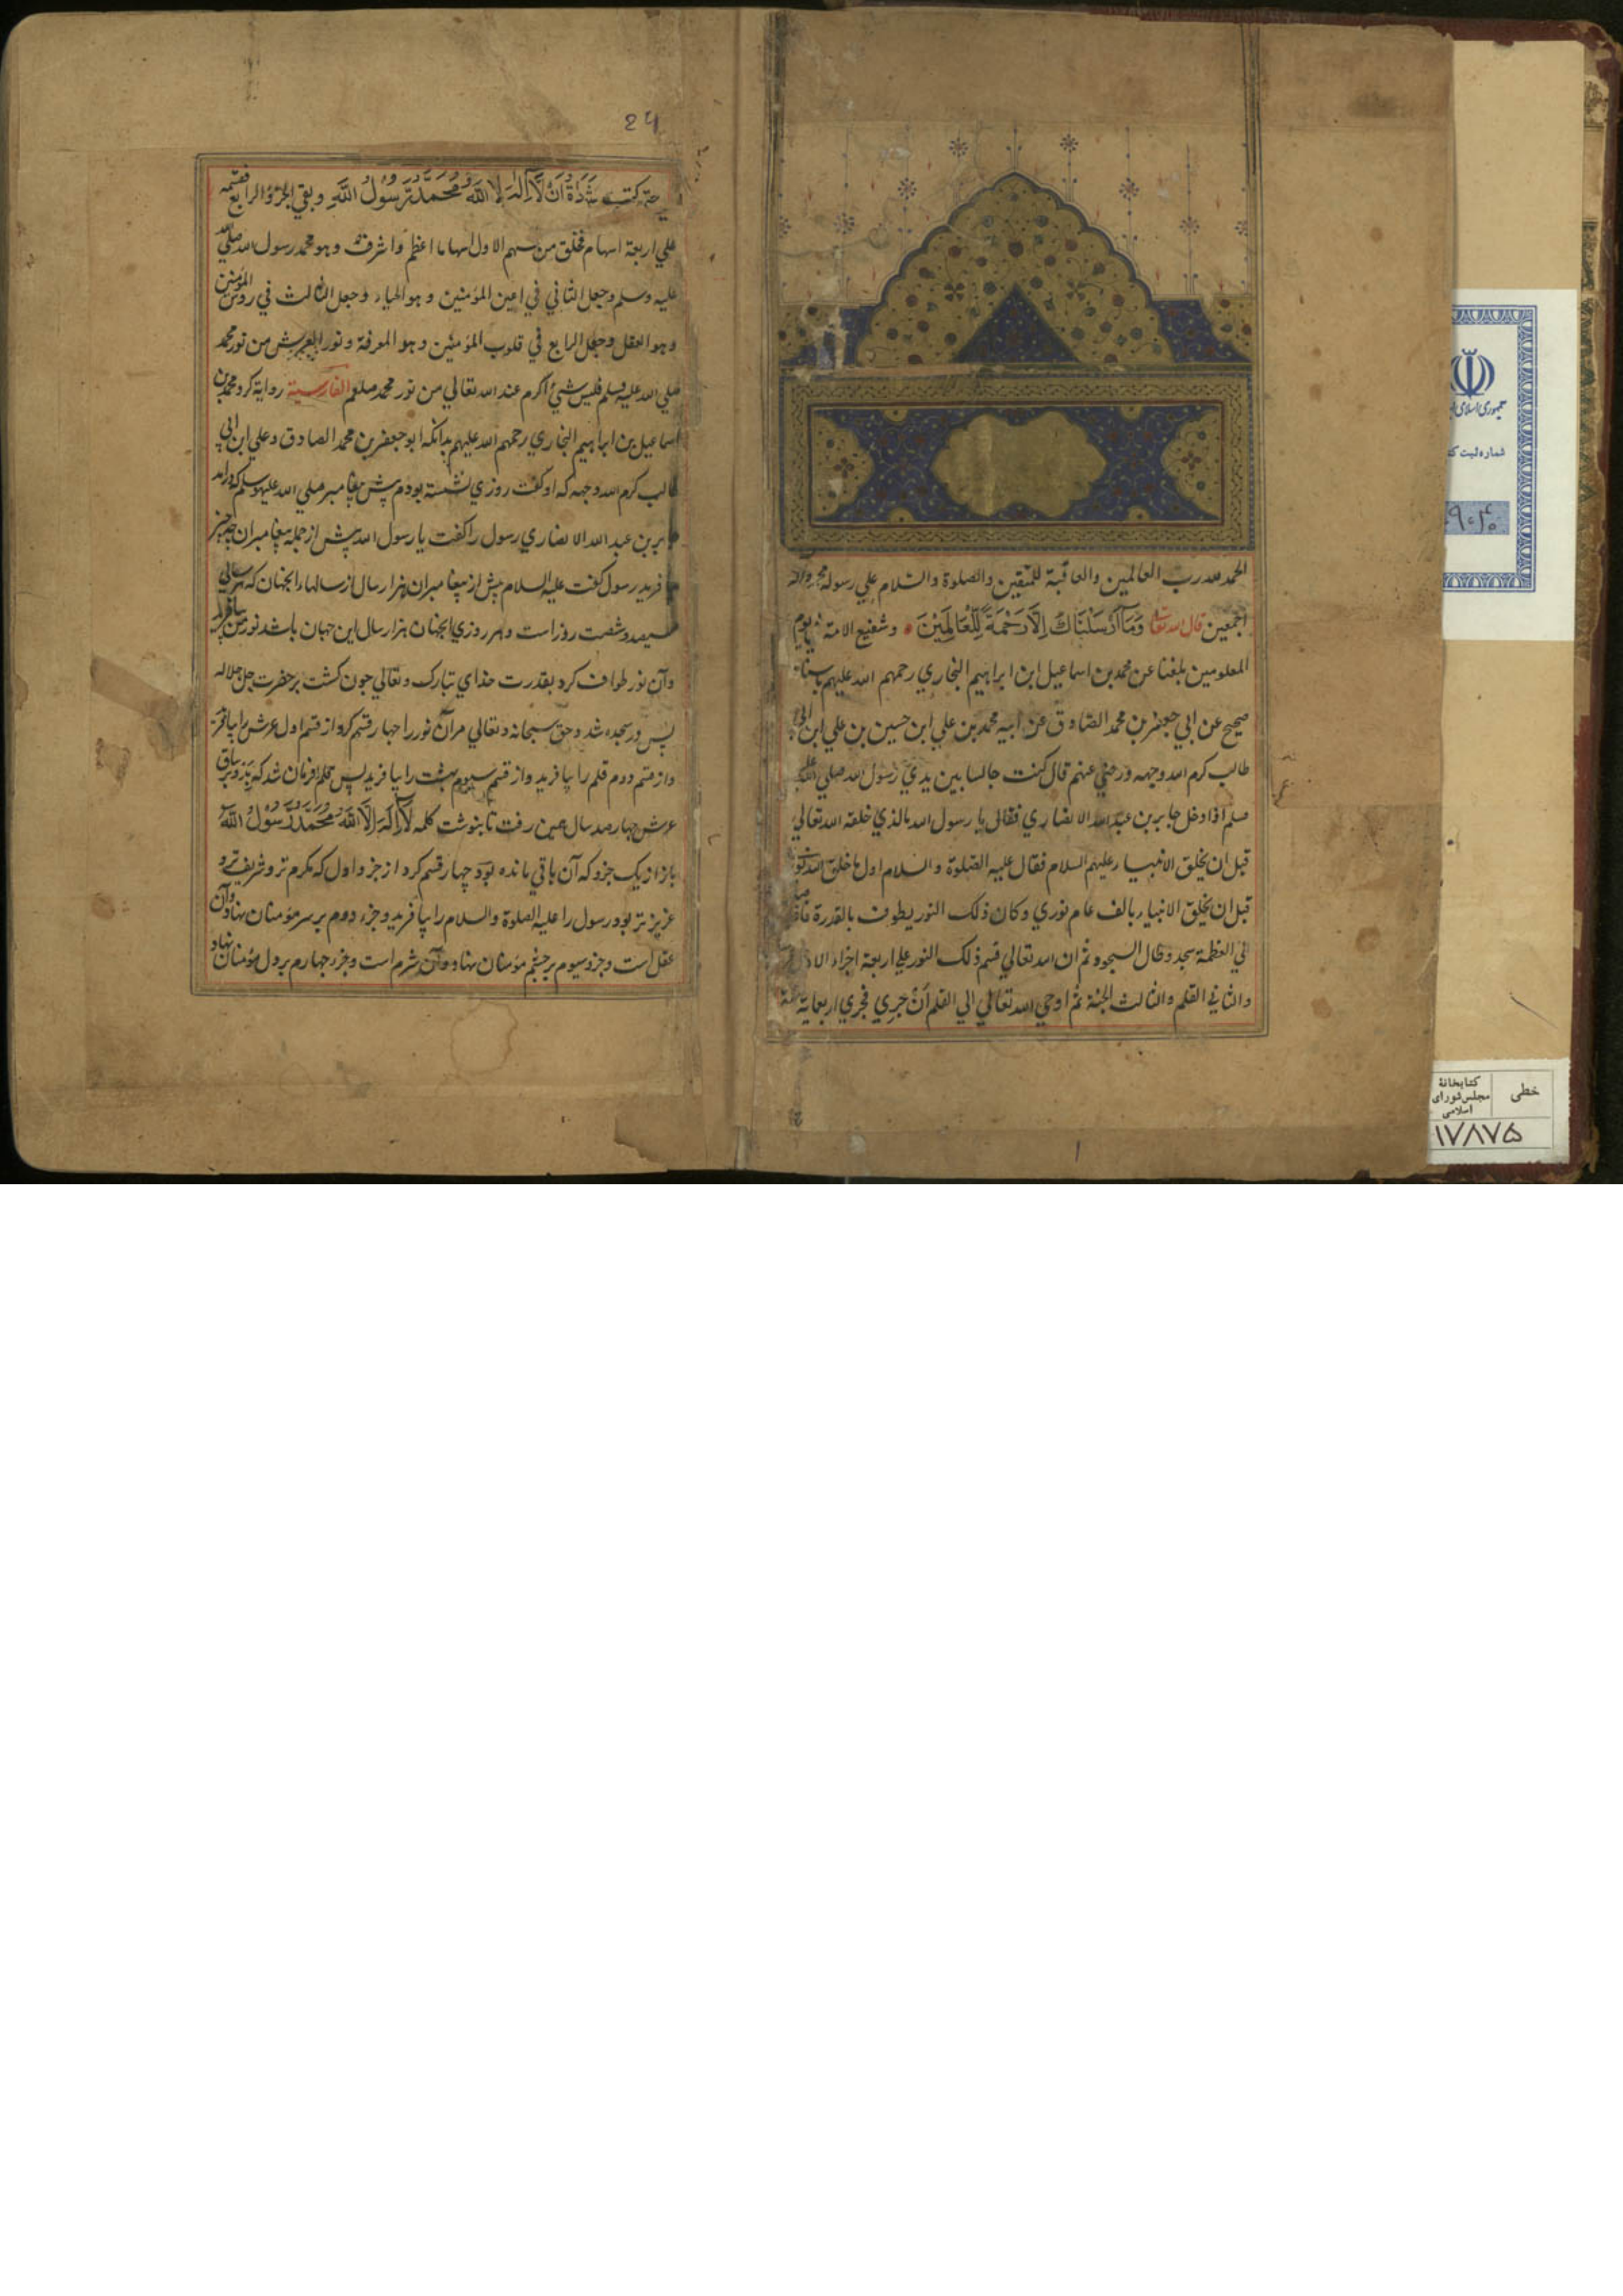 الحمد لله رب العالمين والعاقبة للمتقين والصلوة والسلام علي رسوله محمد وآله
اجمعين قال الله تعالي وَمَآ اَرْسَلْنَاكَ اِلَّا رَحْمَةً لِلْعَالَمِيْنَ وشفيع الامة يوم
المعلومين بلغنا عن محمد بن اسماعيل ابن ابراهيم البخاري رحمهم الله عليهم باسناد
صحيح عن ابي جعفر بن محمد الصادق عن ابيه محمد بن علي ابن حسين بن علي ابن ابي
طالب كرم الله وجهه ورضي عنهم قال كنت جالسا بين يدي رسول الله صلي الله عليه
وسلم اذا دخل جابر بن عبد الله الانصاري فقال يا رسول الله بالذي خلقه الله تعالي
قبل ان يخلق الانبياء عليهم السلام فقال عليه الصلوة والسلام اول ما خلق الله نوري
قبل ان يخلق الانبياء بالف عام نوري وكان ذلك النور يطوف بالقدرة
الي العظمة سجد وطال السجود ثم ان الله تعالي قسم ذلك النور علي اربعة اجزاء
والثاني القلم والثالث الجنة ثم اوحي الله تعالي الي القلم اَنْ جري فجري اربعماية سنة
24
حتي كتب شَهَادَةَ اَنْ لَّا اِلٰهَ اِلَّا اللّٰهُ وَمُحَمَّدٌ رَسُولُ اللّٰهِ وبقي الجزؤ الرابع فقسمه
علي اربعة اسهام فخلق من سهم الاول اسهاما اعظم واشرف وهو محمد رسول الله صلي الله
عليه وسلم وجعل الثاني في اعين المؤمنين وهو الحياء وجعل الثالث في روس المؤمنين
وهو العقل وجعل الرابع في قلوب المؤمنين وهو المعرفة ونور العرش من نور محمد
صلي الله عليه وسلم فليس شيئ اكرم عند الله تعالي من نور محمد صلعم الفارسية رواية كرد محمد بن
اسماعيل بن ابراهيم البخاري رحمهم الله عليهم بدانكه ابو جعفر بن محمد الصادق وعلي ابن ابي
طالب كرم الله وجهه كه او گفت روزي نشسته بودم پيش پيغامبر صلي الله عليه وسلم كه درامد
جابر بن عبد الله الانصاري رسول را گفت يا رسول الله پيش از جمله پيغامبران چه چيز
آفريد رسول گفت عليه السلام پيش از پيغامبران هزار سال از سالهاء انجهان كه هر سالي
سيصد وشصت روز است وهر روزي انجهان هزار سال اين جهان باشد نور من بيافريد
وآن نور طواف كرد بقدرت خداي تبارك وتعالي چون گشت بر حضرت جل جلاله
پس در سجده شد وحق سبحانه وتعالي مر آن نور را چهار قسم كرد از قسم اول عرش را بيافريد
واز قسم دوم قلم را بيافريد واز قسم سيوم بهشت را بيافريد پس قلم را فرمان شد كه برو بر ساق
عرش چهار صد سال همين رفت تا بنوشت كلمه لَآ اِلٰهَ اِلَّا اللّٰهُ مُحَمَّدٌ رَسُولُ اللّٰهِ
باز از يك جزو كه آن باقي مانده بود چهار قسم كرد از جزو اول كه مكرم تر وشريف تر و
عزيز تر بود رسول را عليه الصلوة والسلام را بيافريد وجزء دوم بر سر مؤمنان نهاد وآن
عقل است وجزو سيوم بر چشم مؤمنان نهاد وآن شرم است وجزء چهارم بر دل مؤمنان نهاد
١
جمهوری اسلامی
شماره ثبت
خطی
کتابخانهٔ
مجلس شورای
اسلامی
۱۷۸۷۵